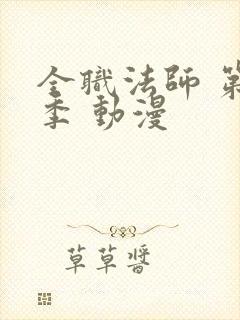 全職法師 第
季 動漫
草草醬